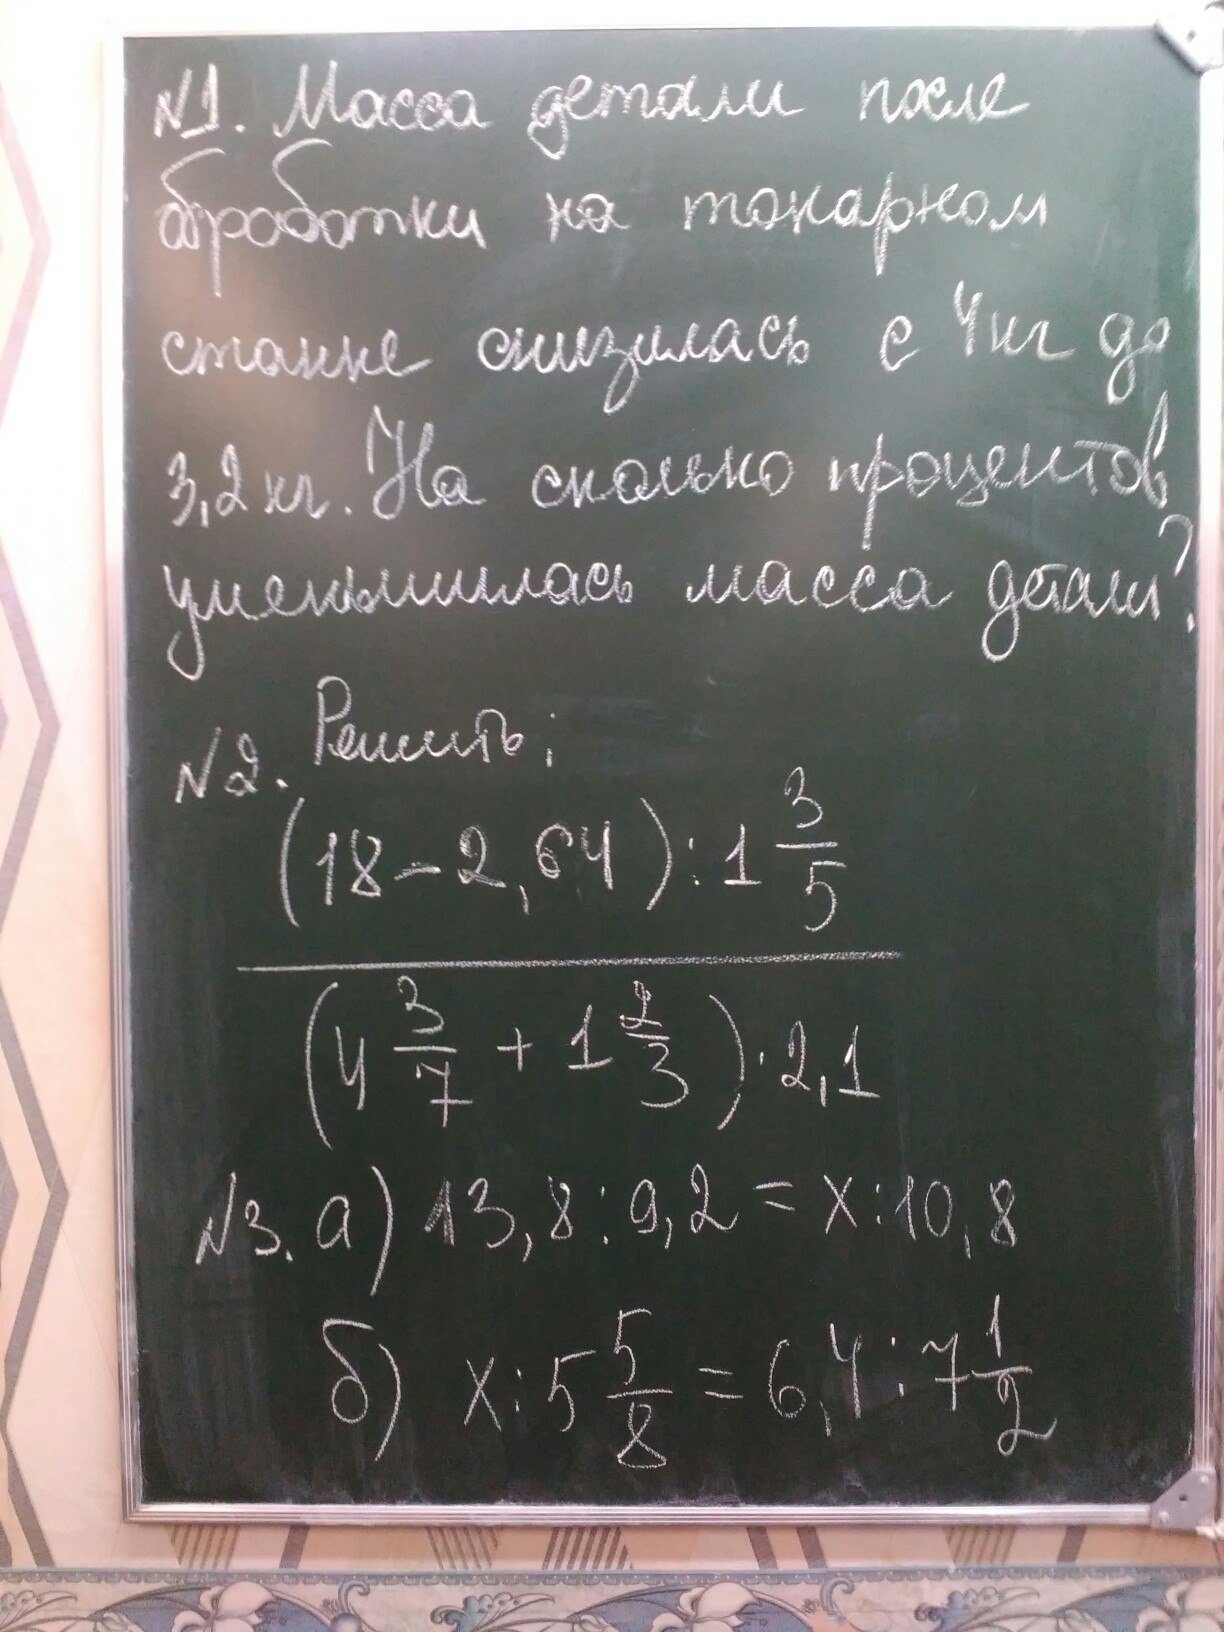 №1. Масса детали после
обработки на токарном
станке снизилась с 4кг до
3,2кг. На сколько процентов
уменьшилась масса детали?
№2. Решить:
(18-2,64):1 3/5
(4 3/7 + 1 2/3)·2,1
№3. а) 13,8:9,2=х:10,8
б) х:5 5/8=6,4:7 1/2